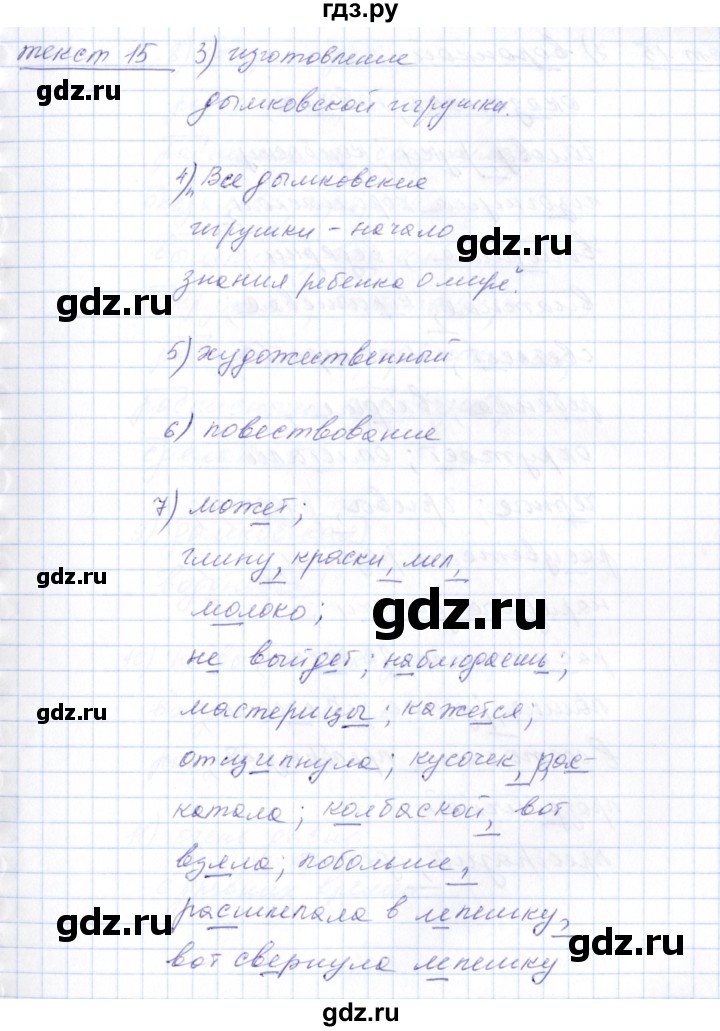 гдз.ру
текст 15 3) изготовление
дымковской игрушки.
4) „Все дымковские
игрушки – начало
gdz.ru gdz.ru
знания ребенка о мире“.
gdz.ru
5) художественный
gdz.ru
6) повествование
7) может;
глину, краски, мел,
gdz.ru
молоко;
gdz.ru
не выйдет; наблюдаешь;
мастерицы; кажется;
gdz.ru
отщипнула; кусочек, рас-
катала; колбасской, вот
взяла; побольше,
расшлепала в лепешку,
gdz.ru
вот свернула лепешку
gdz.ru
gdz.ru